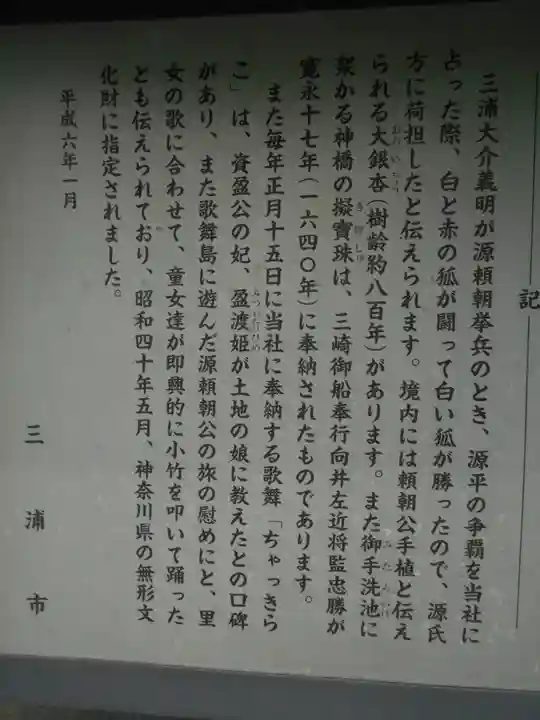 記
三浦大介義明が源頼朝挙兵のとき、源平の争覇を当社に
占った際、白と赤の狐が闘って白い狐が勝ったので、源氏
方に荷担したと伝えられます。境内には頼朝公手植と伝え
られる大銀杏(樹齢約八百年)があります。また御手洗池に
架かる神橋の擬寶珠は、三崎御船奉行向井左近将監忠勝が
寛永十七年(一六四〇年)に奉納されたものであります。
また毎年正月十五日に当社に奉納する歌舞「ちゃっきら
こ」は、資盈公の妃、盈渡姫が土地の娘に教えたとの口碑
があり、また歌舞島に遊んだ源頼朝公の旅の慰めにと、里
女の歌に合わせて、童女達が即興的に小竹を叩いて踊った
とも伝えられており、昭和四十年五月、神奈川県の無形文
化財に指定されました。
平成六年一月
三浦市